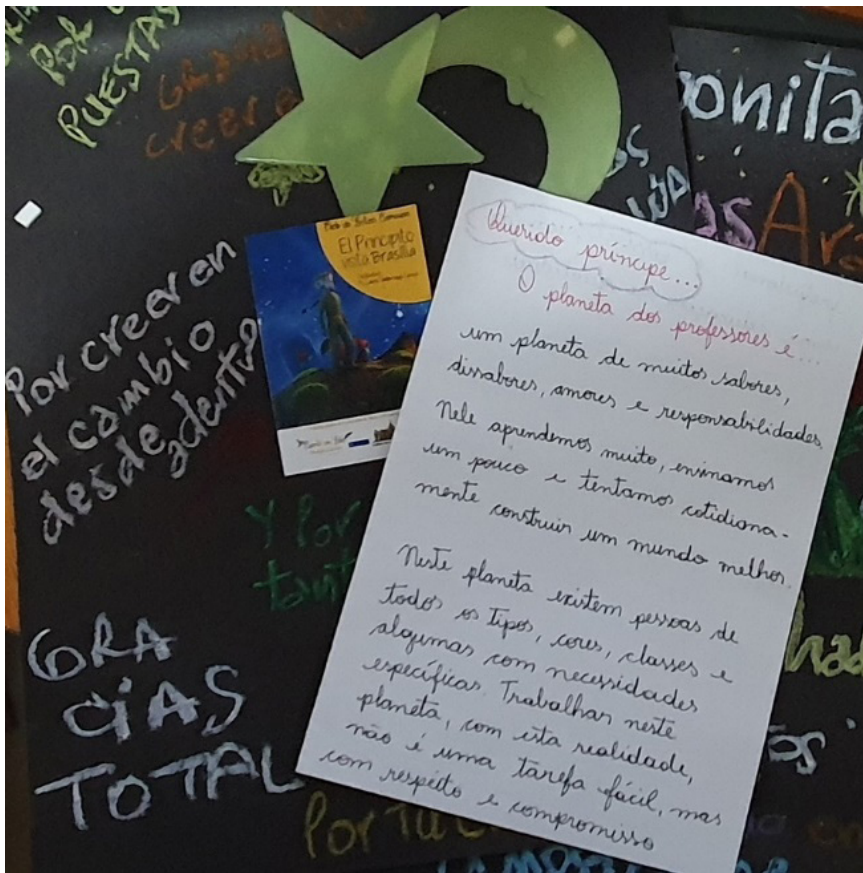 POR
PUESTAS
creer e
bonita
AS
Ar
El Principito
visita Brasilia
Por creer en
el cambio
desde adentro
Y Por
tant
GRA
CIAS
TOTAL
Por Tu
Querido príncipe...
O planeta dos professores é...
um planeta de muitos sabores,
dissabores, amores e responsabilidades.
Nele aprendemos muito, ensinamos
um pouco e tentamos cotidiana-
mente construir um mundo melhor.
Neste planeta existem pessoas de
todos os tipos, cores, classes e
algumas com necessidades
específicas. Trabalhar neste
planeta, com esta realidade,
não é uma tarefa fácil, mas
com respeito e compromisso